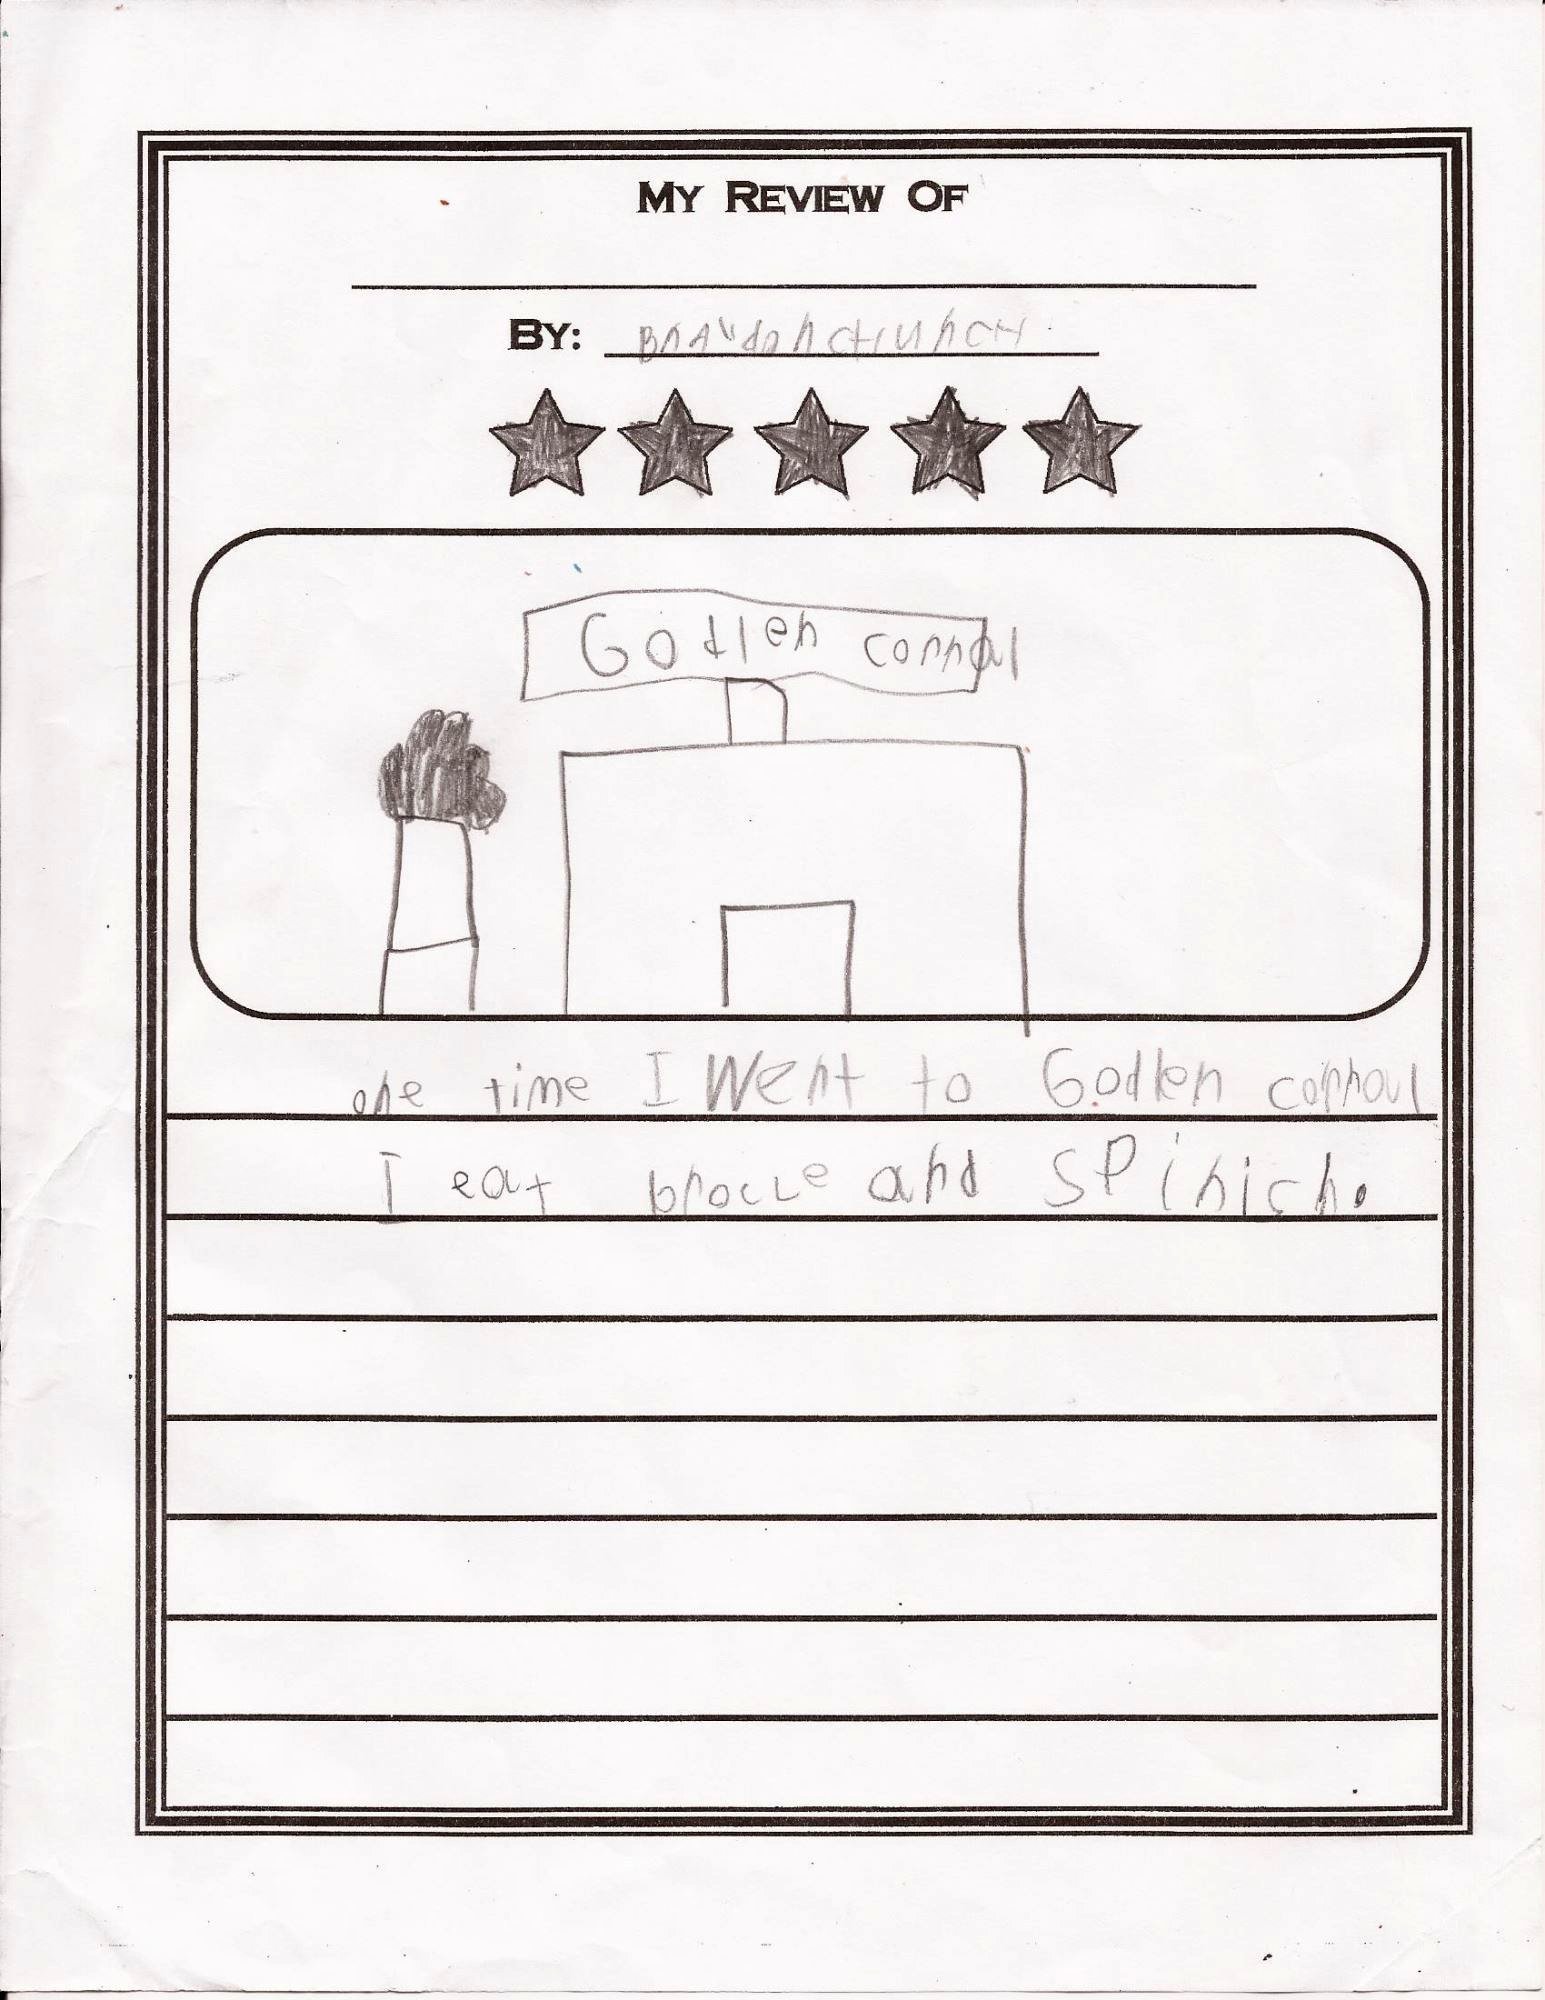 MY REVIEW OF
BY: Braydon church
Godlen corral
one time I Went to Godlen corroul
I eat brocle and SPinich.